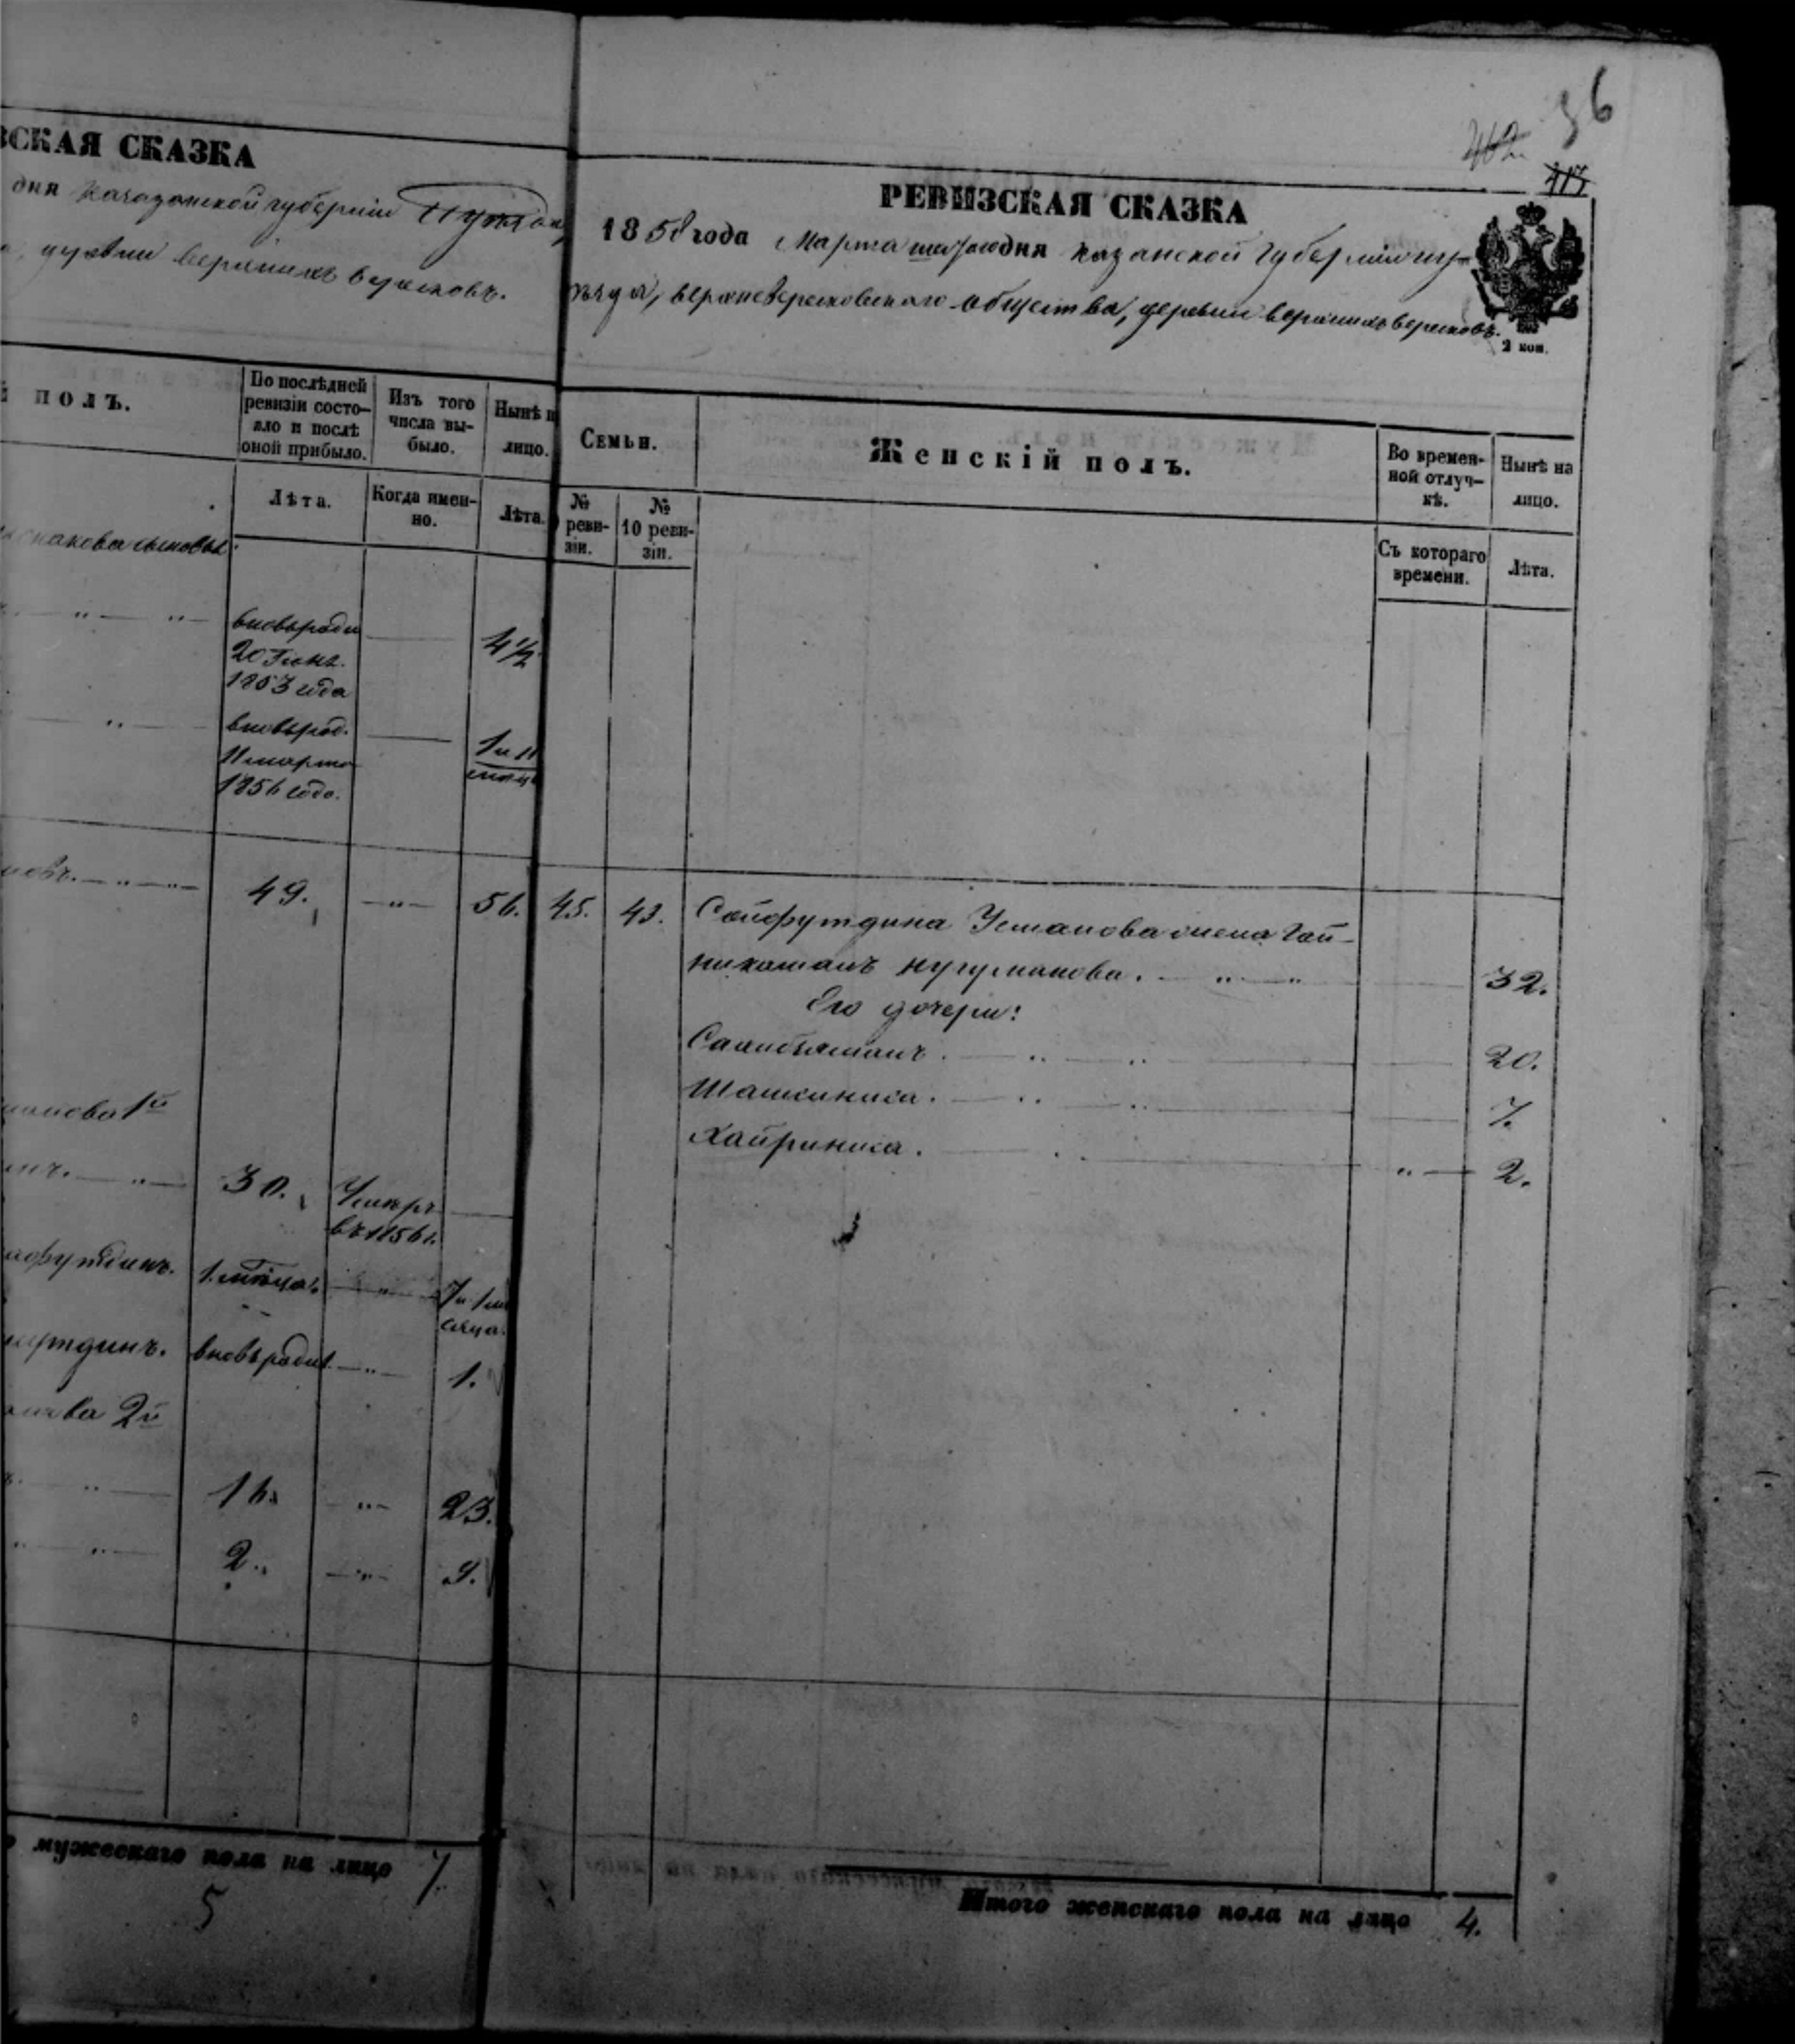 ВСКАЯ СКАЗКА
дня Казанской губерніи
деревни верхнихъ вересковъ.
й полъ.
По послѣдней ревизіи состо-
яло и послѣ
оной прибыло.
Изъ того
числа вы-
было.
Нынѣ н
лицо.
Лѣта.
Когда имен-
но.
Лѣта.
сыновья
вновьроди
20 Іюня
1853 года
4 1/2
вновьрод.
11 марта
1856 года.
1 и 11
49.
56.
1й
30.
Умеръ
въ 1856 г.
футдинъ.
1. мѣсяца
7 и 1 мѣ
сяца.
утдинъ.
вновьродил
1.
2й
16.
23.
2.
9.
мужескаго пола на лицо 7.
5
36
402
417
РЕВИЗСКАЯ СКАЗКА
1858 года Марта дня Казанской Губерніи
ѣзда, верхневересковскаго общества, деревни верхнихъ вересковъ.
2 коп.
Семьи.
Женскій полъ.
Во времен-
ной отлуч-
кѣ.
Нынѣ на
лицо.
№
реви-
зіи.
№
10 реви-
зіи.
Съ котораго
времени.
Лѣта.
45. 43. Сайфутдина Усманова жена Гай-
нижамалъ Нугуманова. 32.
Его дочери:
20.
Шамсиниса. 7.
Хайриниса. 2.
Итого женскаго пола на лицо 4.